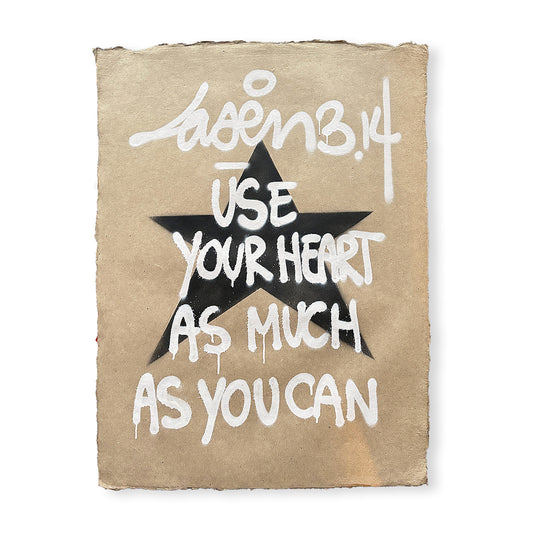 Laser 3.14
USE
YOUR HEART
AS MUCH
AS YOU CAN